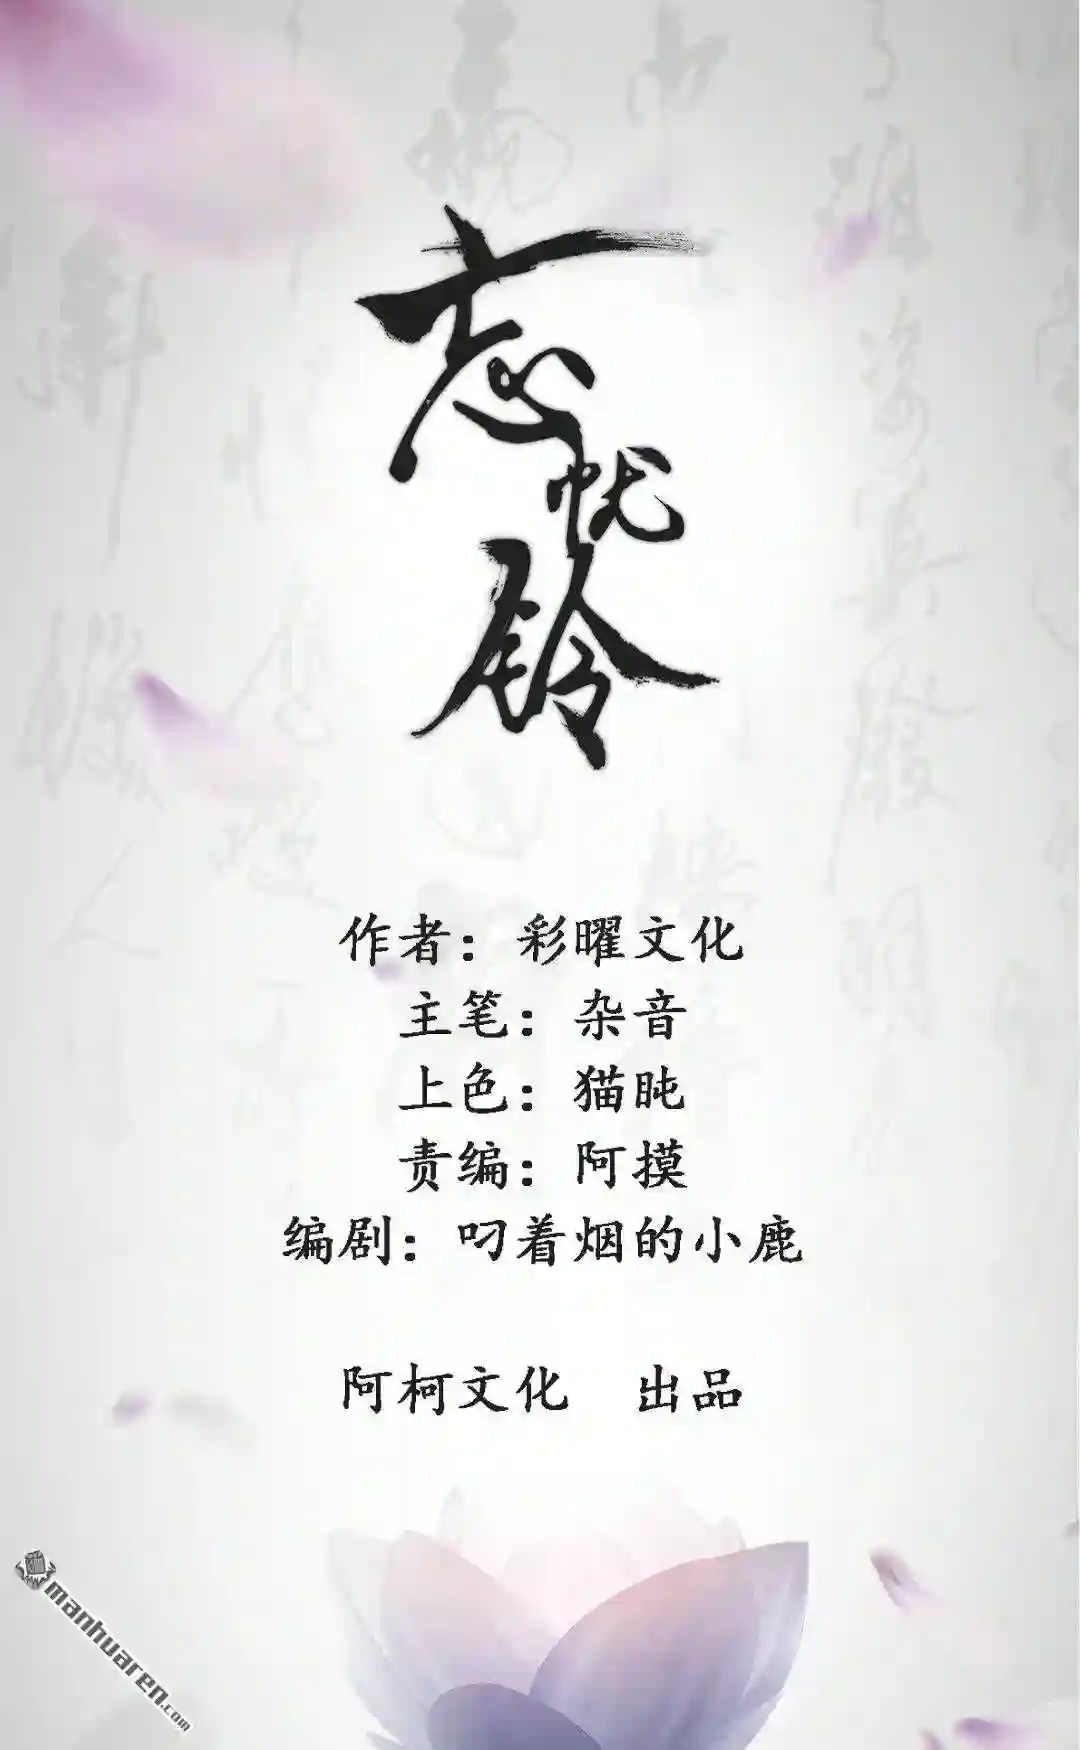 忘忧铃
作者：彩曜文化
主笔：杂音
上色：猫盹
责编：阿摸
编剧：叼着烟的小鹿
阿柯文化 出品
manhuaren.com